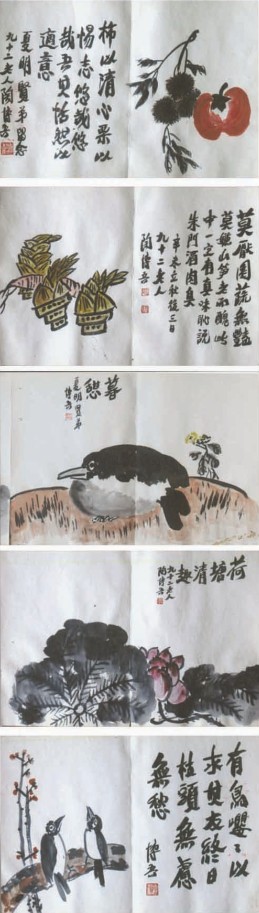 柿以清心栗以
惕志悠哉悠
哉吾恬然以
適意
夏明賢弟留念
九十二老人陶博吾
莫厭園蔬無
莫山笋老而
中一定有真味
朱門酒肉臭
辛未立秋後三日
九十二老人
陶博吾
暮憩
夏明賢弟
博吾
荷塘清趣
九十二老人
陶博吾
有鳥嚶々以
求其友終日
枝頭無慮
無愁
博吾